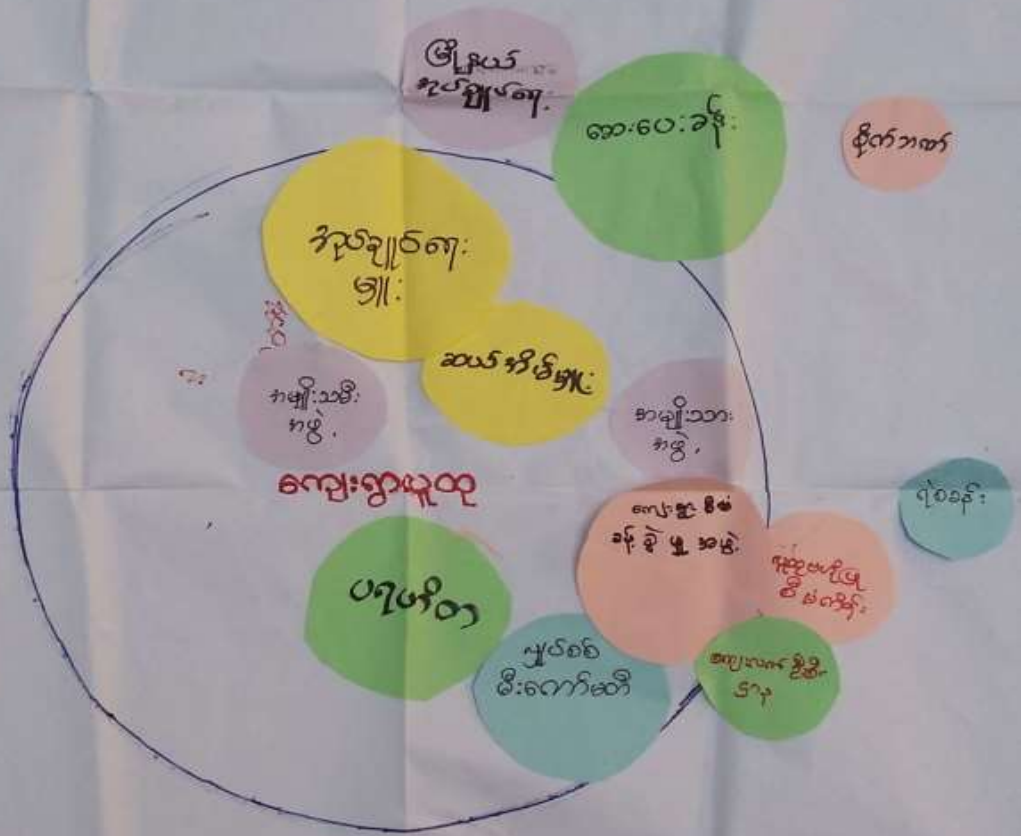 မြို့နယ်
အုပ်ချုပ်ရေး
ဆေးပေးခန်း
စိုက်ဘဏ်
အုပ်ချုပ်ရေး
မှူး
ဆယ်အိမ်မှူး
အမျိုးသမီး
အဖွဲ့
အမျိုးသား
အဖွဲ့
ကျေးရွာလူထု
ရဲစခန်း
ကျေးရွာ စီမံ
ခန့်ခွဲမှု အဖွဲ့
စီမံကိန်း
ပရဟိတ
လျှပ်စစ်
မီးကော်မတီ
ကျေးလက်
ဌာန